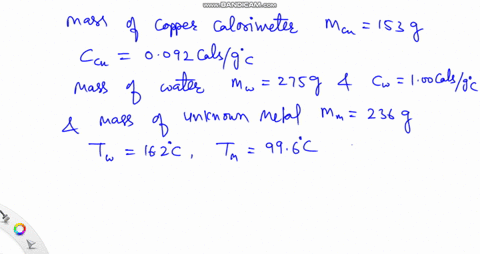 WWW.BANDICAM.COM
mass of copper calorimeter Mcu = 153 g
Ccu = 0.092 Cals/g°C
mass of water mw = 275g & Cw = 1.00 Cals/g°C
& mass of unknown metal Mm = 236 g
Tw = 162°C, Tm = 99.6°C